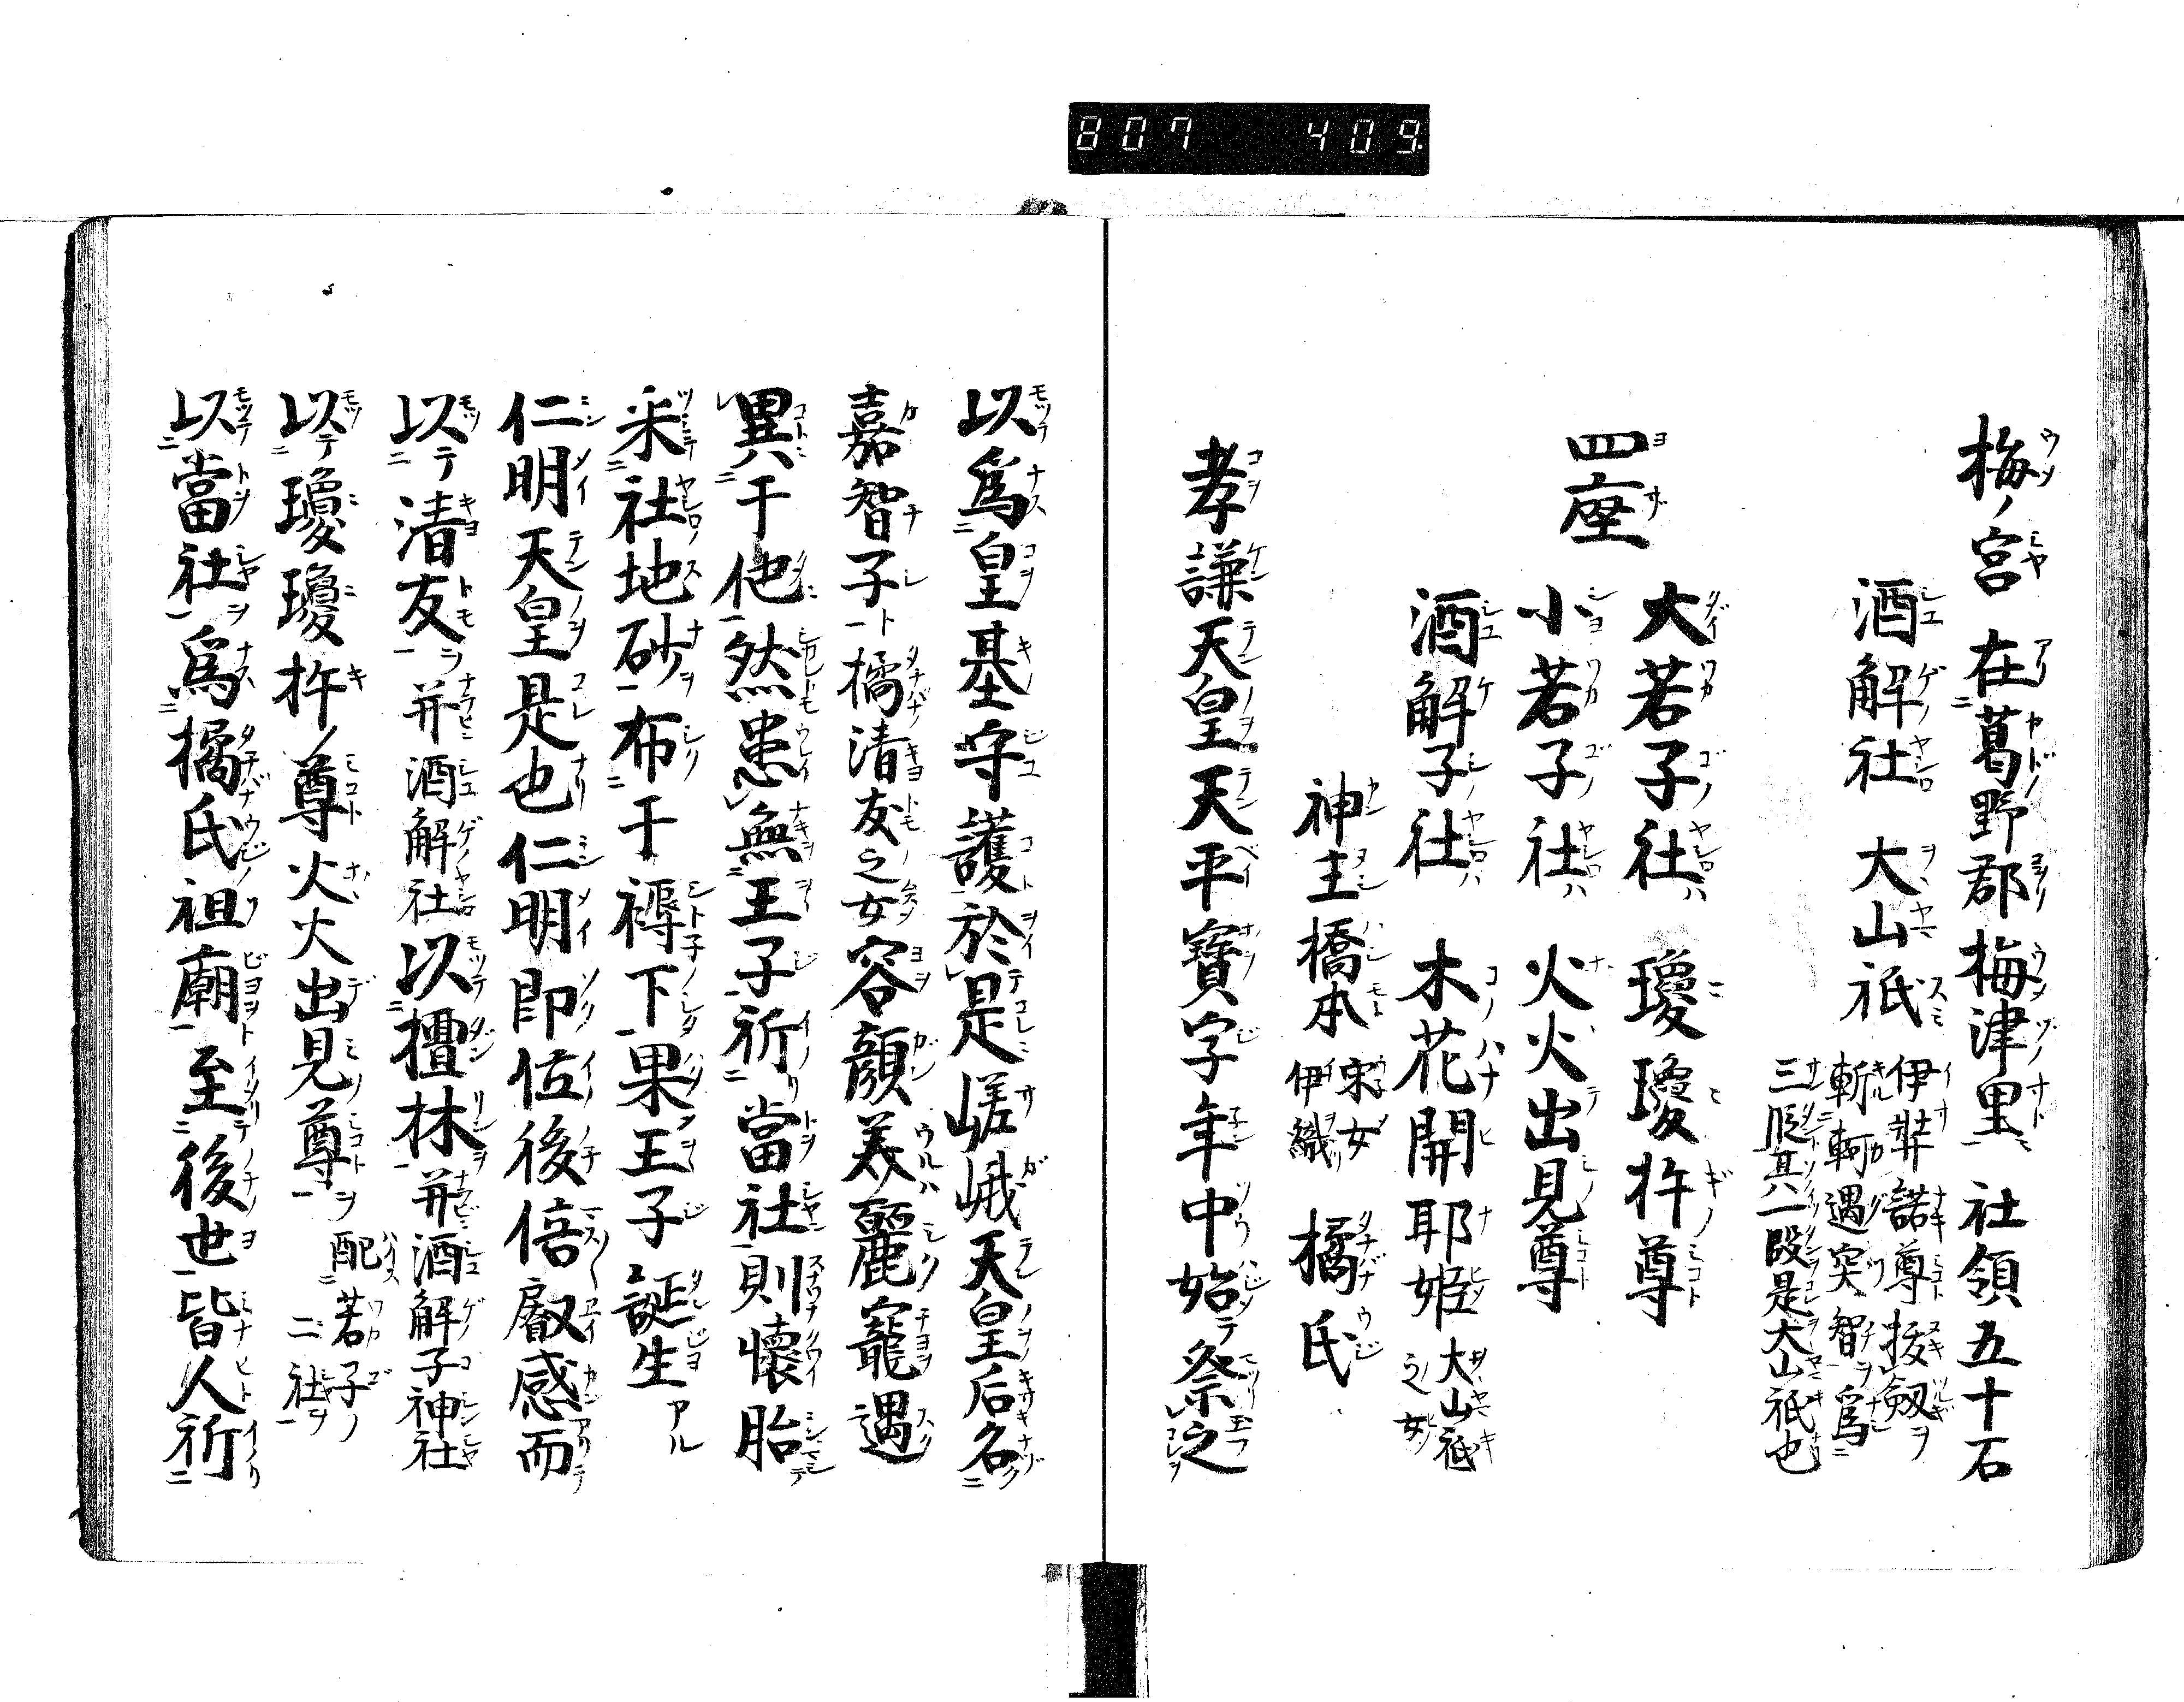 807 409
梅ノ宮 在葛野郡梅津里 社領五十石
酒解社 大山祇 伊弉諾尊拔劔
斬軻遇突智為
三段其一段是大山祇也
四座
大若子社 瓊瓊杵尊
小若子社 火火出見尊
酒解子社 木花開耶姫 大山祇
之女
神主橋本 宋女
伊織 橘氏
孝謙天皇天平寶字年中始テ祭之
以為皇基守護於是嵯峨天皇后名
嘉智子ト橘清友之女容顔美麗寵遇
異于他然患無王子祈當社則懐胎
采社地砂布于褥下果王子誕生アル
仁明天皇是也仁明即位後倍叡感而
以テ清友ヲ并酒解社以檀林并酒解子神社
以テ瓊瓊杵ノ尊火火出見尊ヲ 配若子ノ
二社
以當社為橘氏祖廟至後世皆人祈